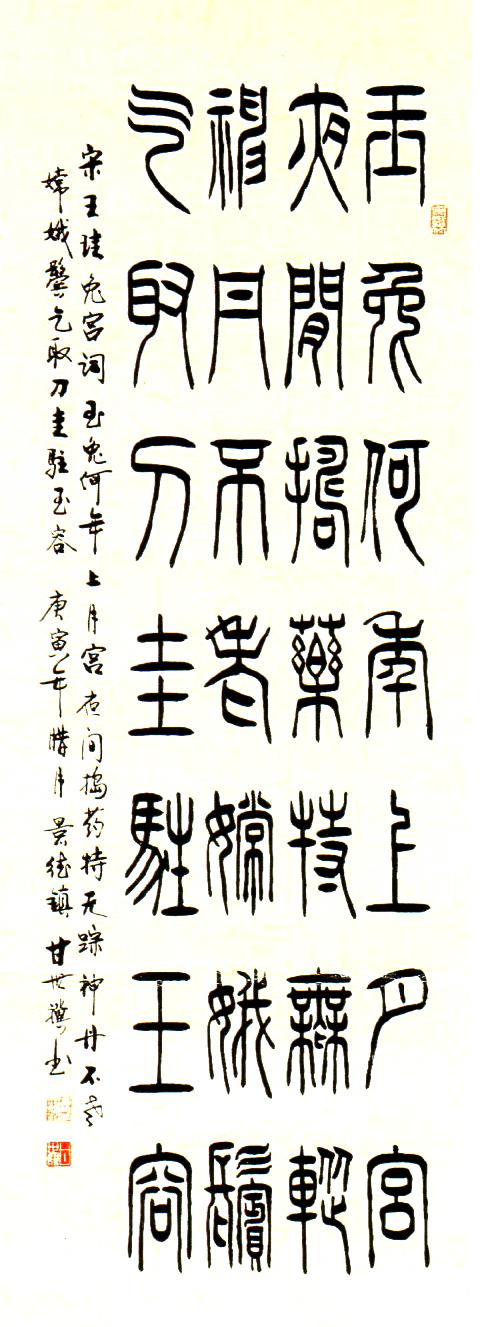 玉兔何年上月宮
夜間搗藥特無蹤
神丹不老嫦娥鬢
乞取刀圭駐玉容
宋王珪兔宫词 玉兔何年上月宫夜间捣药特无踪神丹不老
嫦娥鬓乞取刀圭驻玉容 庚寅年腊月景德镇甘世 书